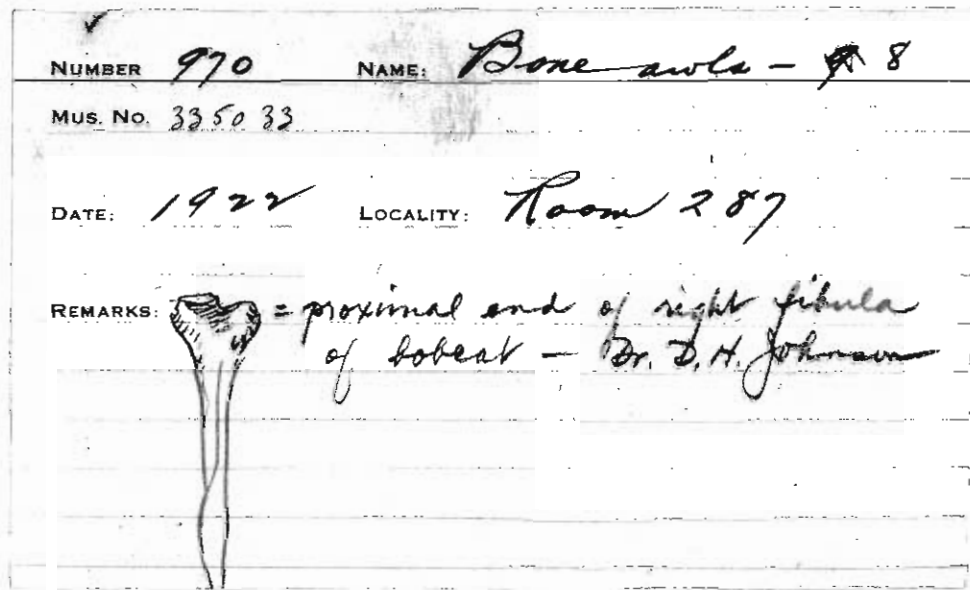 NUMBER 970 NAME: Bone awls - 8
MUS. NO. 335033
DATE: 1922 LOCALITY: Room 287
REMARKS: = proximal end of right fibula
of bobcat - Dr. D. H. Johnson